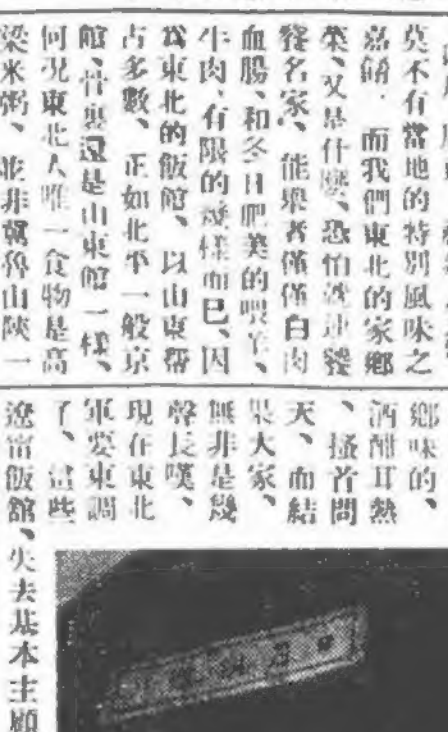 莫不有當地的特別風味之
嘉餚．而我們東北的家鄉
菜、又是什麼、恐怕
名家、能舉者僅僅白肉
血腸、和冬日肥美的喂羊、
牛肉、有限的幾樣而已、因
為東北的飯館、以山東幫
占多數、正如北平一般京
館、骨裏還是山東館一樣、
何況東北人唯一食物是高
梁米粥、並非冀魯山陝一
鄉味的、
酒酣耳熱
、搔首問
天、而結
果大家、
無非是幾
聲長嘆、
現在東北
軍要東調
了、這些
遼富飯舘、失去基本主顧